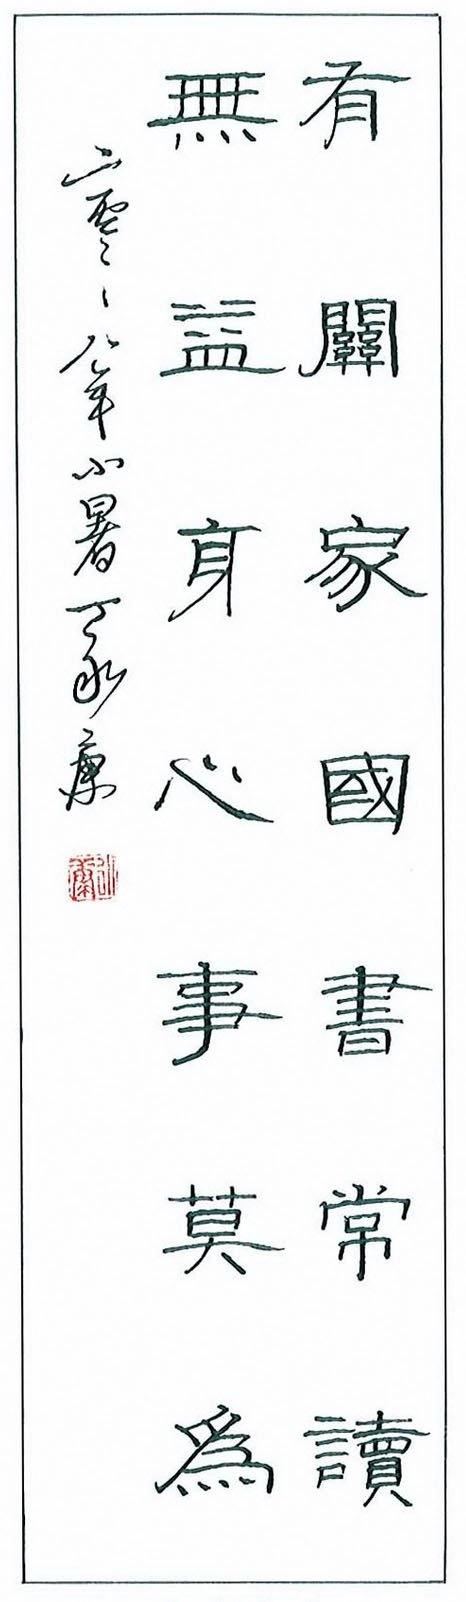 有關家國書常讀
無益身心事莫爲
二零〻八年小暑丁永康